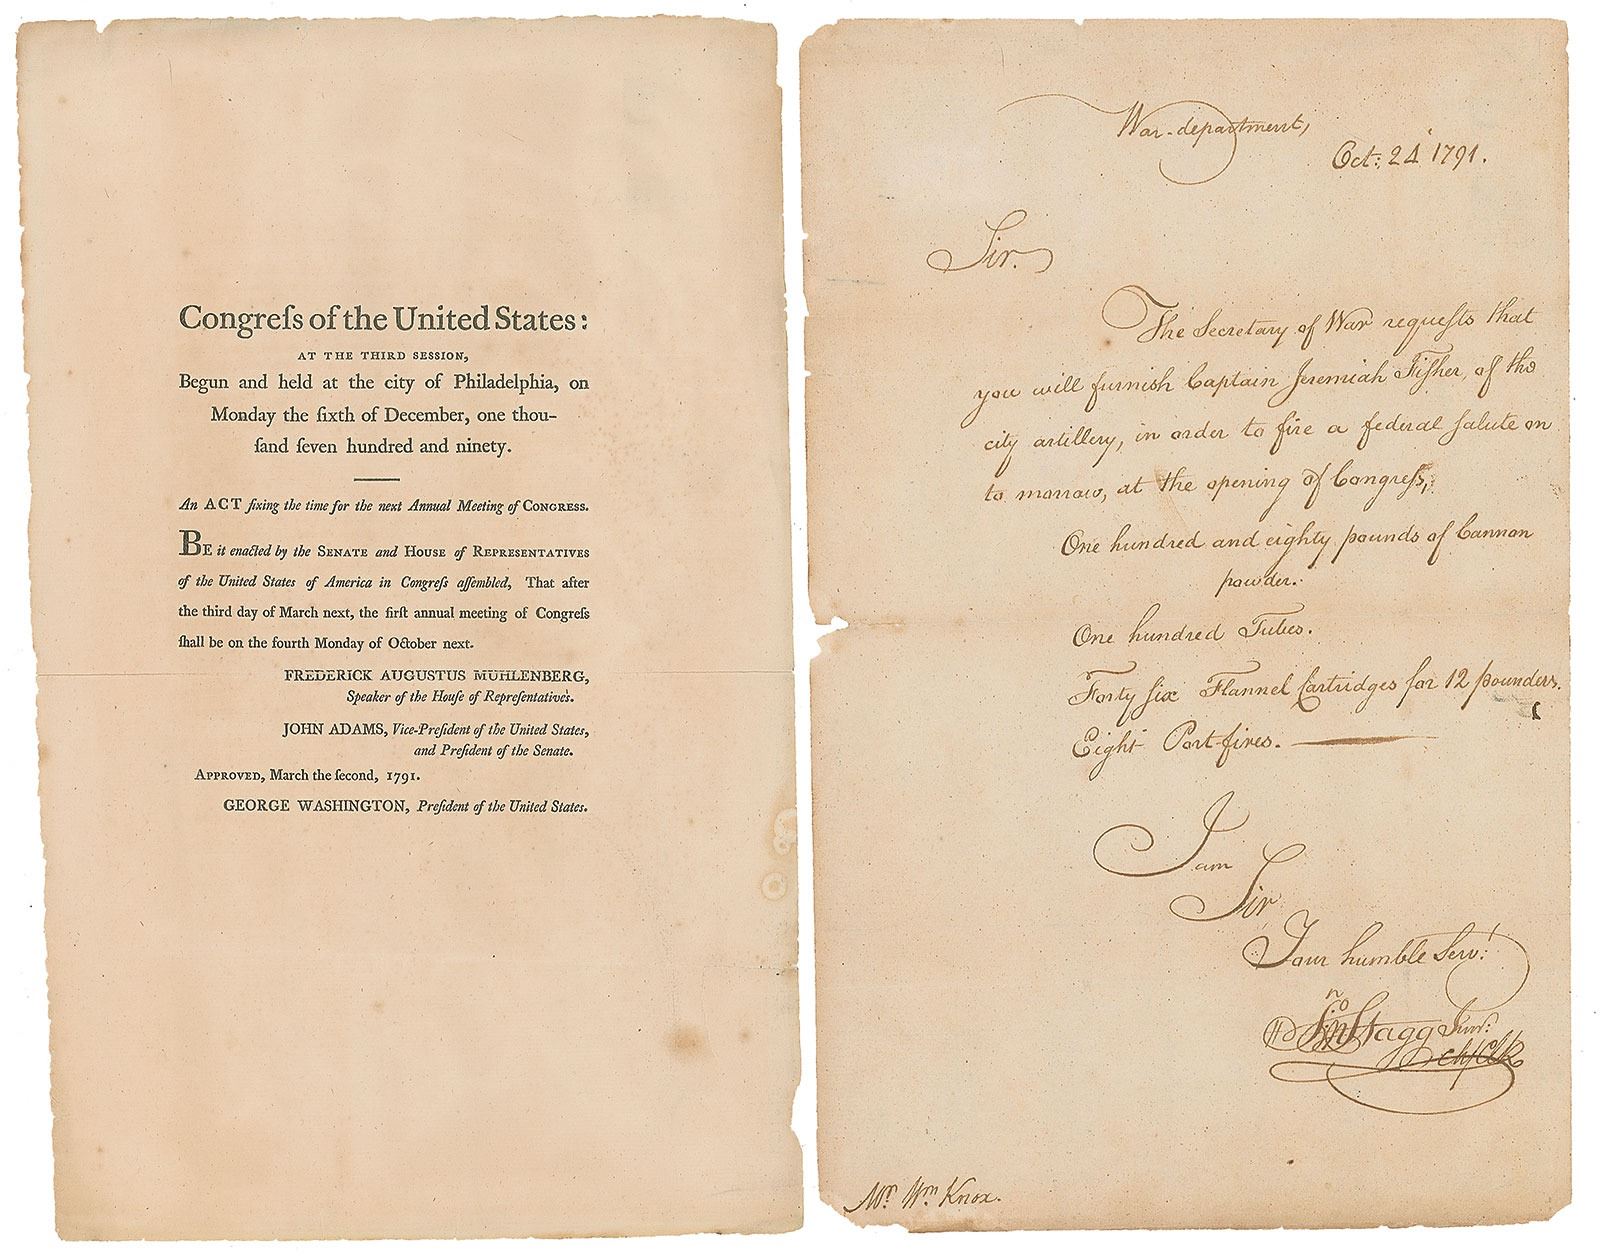 Congreſs of the United States:
AT THE THIRD SESSION,
Begun and held at the city of Philadelphia, on
Monday the ſixth of December, one thou-
ſand ſeven hundred and ninety.
An ACT fixing the time for the next Annual Meeting of CONGRESS.
BE it enacted by the SENATE and HOUSE of REPRESENTATIVES
of the United States of America in Congreſs aſſembled, That after
the third day of March next, the firſt annual meeting of Congreſs
ſhall be on the fourth Monday of October next.
FREDERICK AUGUSTUS MUHLENBERG,
Speaker of the Houſe of Repreſentatives.
JOHN ADAMS, Vice-Preſident of the United States,
and Preſident of the Senate.
APPROVED, March the ſecond, 1791.
GEORGE WASHINGTON, Preſident of the United States.
War-department,
Oct: 24 1791.
Sir.
The Secretary of War requeſts that
you will furnish Captain Jeremiah Fiſher, of the
city artillery, in order to fire a federal ſalute on
to morrow, at the opening of Congreſs,
One hundred and eighty pounds of Cannon
powder.
One hundred Tubes.
Forty ſix Flannel Cartridges for 12 pounders.
Eight Port-fires.
I am
Sir
Your humble Servt.
Jno Stagg Junr:
ch. Clk
Mr. Wm Knox.